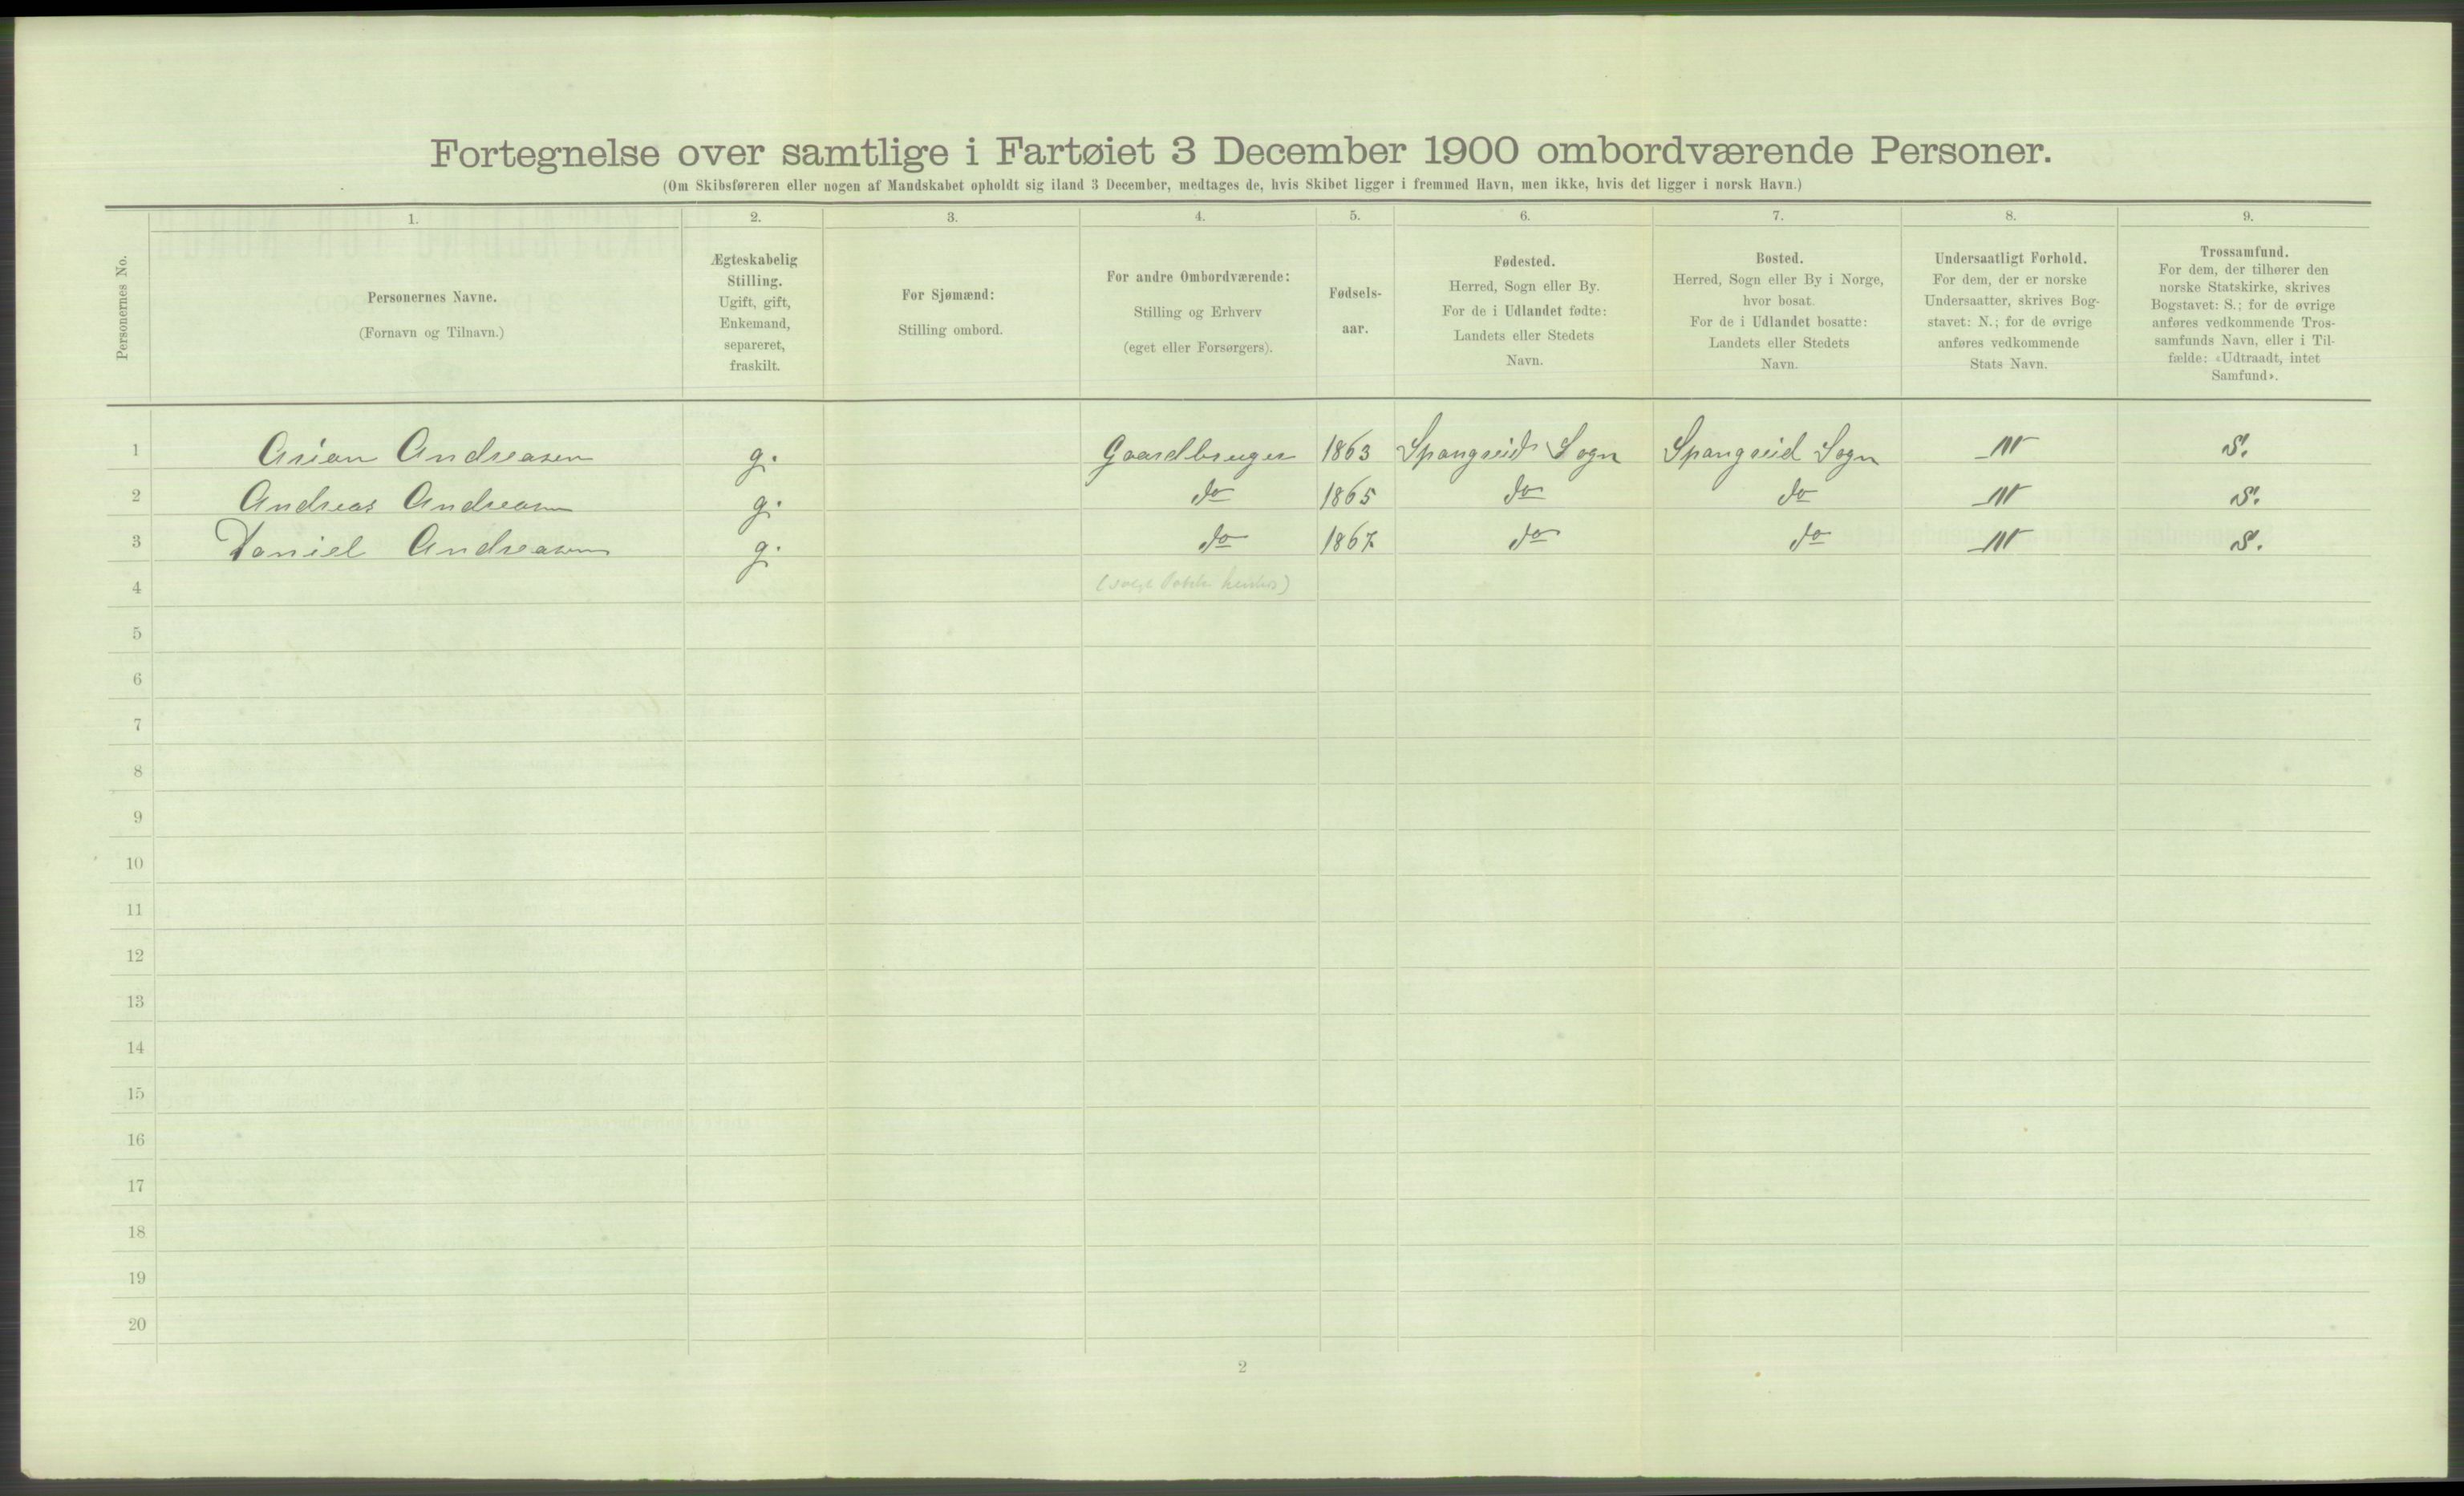 Fortegnelse over samtlige i Fartøiet 3 December 1900 ombordværende Personer.
(Om Skibsføreren eller nogen af Mandskabet opholdt sig iland 3 December, medtages de, hvis Skibet ligger i fremmed Havn, men ikke, hvis det ligger i norsk Havn.)
Personernes No.
1.
Personernes Navne.
(Fornavn og Tilnavn.)
2.
Ægteskabelig
Stilling.
Ugift, gift,
Enkemand,
separeret,
fraskilt.
3.
For Sjømænd:
Stilling ombord.
4.
For andre Ombordværende:
Stilling og Erhverv
(eget eller Forsørgers).
5.
Fødsels-
aar.
6.
Fødested.
Herred, Sogn eller By.
For de i Udlandet fødte:
Landets eller Stedets
Navn.
7.
Bosted.
Herred, Sogn eller By i Norge,
hvor bosat.
For de i Udlandet bosatte:
Landets eller Stedets
Navn.
8.
Undersaatligt Forhold.
For dem, der er norske
Undersaatter, skrives Bog-
stavet: N.; for de øvrige
anføres vedkommende
Stats Navn.
9.
Trossamfund.
For dem, der tilhører den
norske Statskirke, skrives
Bogstavet: S.; for de øvrige
anføres vedkommende Tros-
samfunds Navn, eller i Til-
fælde: «Udtraadt, intet
Samfund».
1 Arian Andreasen g. Gaardbruger 1863 Spangreid Sogn Spangreid Sogn N S.
2 Andreas Andreasen g. do 1865 do do N S.
3 Daniel Andreasen g. do 1867 do do N S.
4
5
6
7
8
9
10
11
12
13
14
15
16
17
18
19
20
2